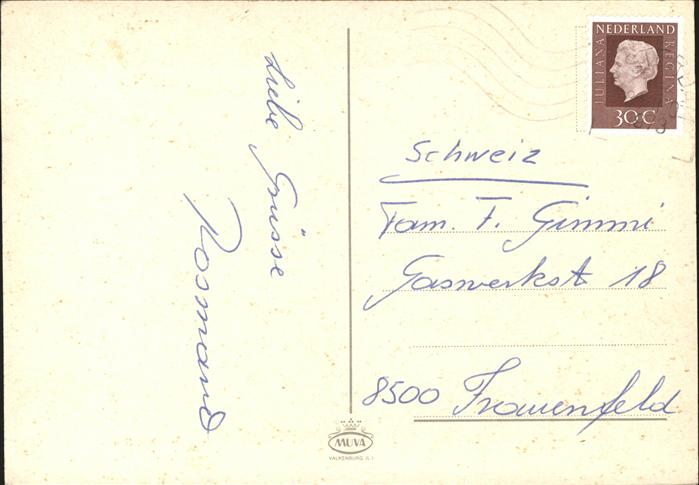 Liebe Grüsse
NEDERLAND
JULIANA REGINA
30 C
Schweiz
Fam. F. Gimmi
Gaswerkst 18
8500 Frauenfeld
MUVA
VALKENBURG (L.)